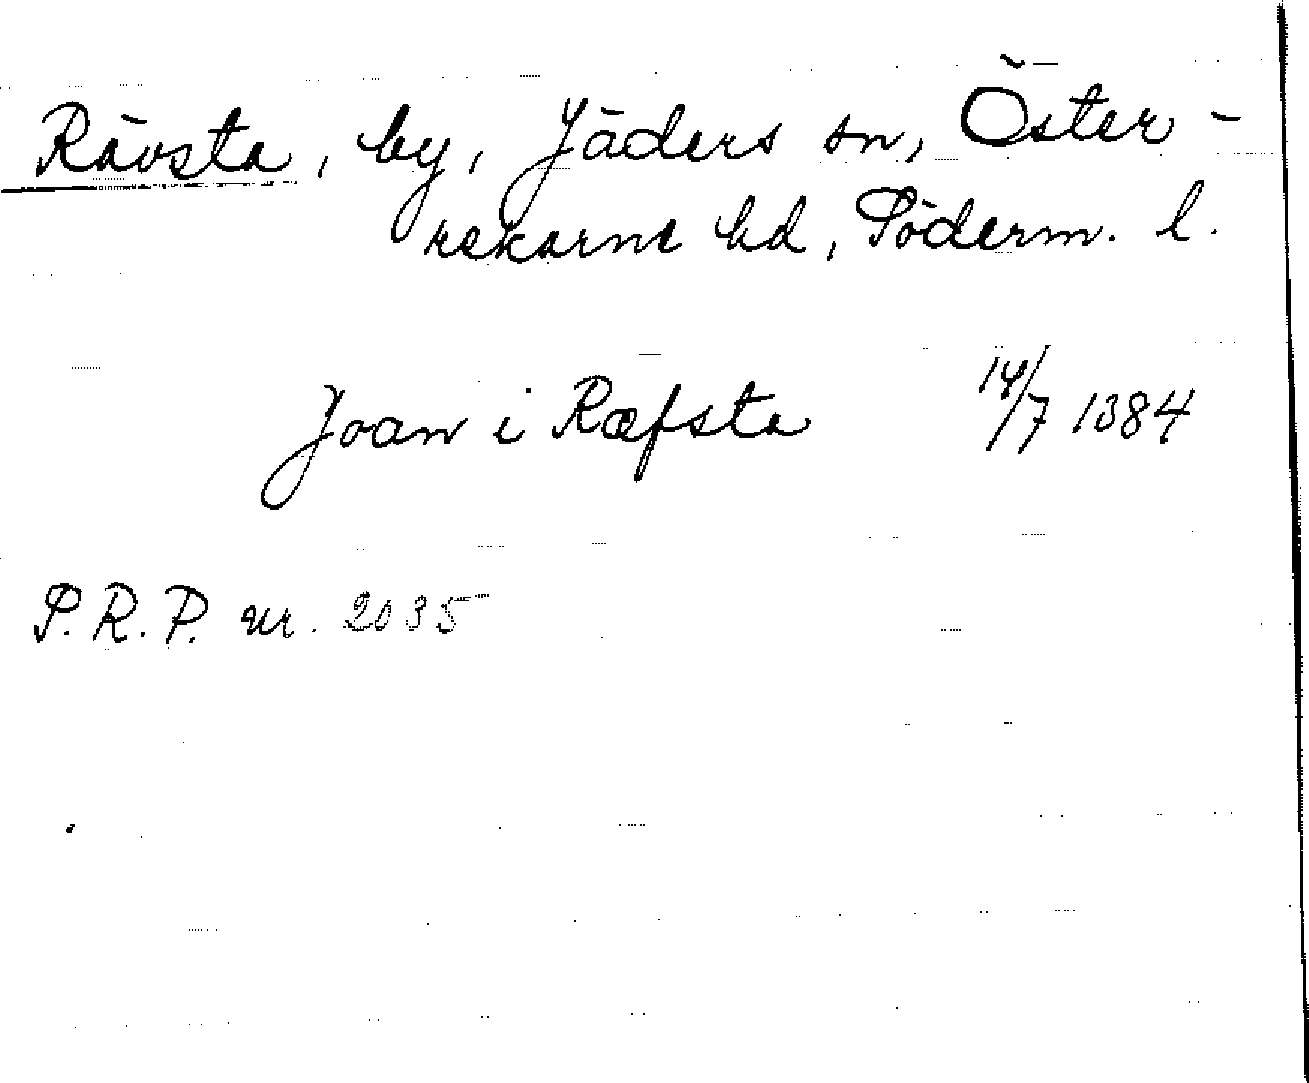 Rävsta, by, Jäders sn, Öster-
rekarne hd, Söderm. l.
Joan i Ræfsta 14/7 1384
S.R.P. nr. 2035